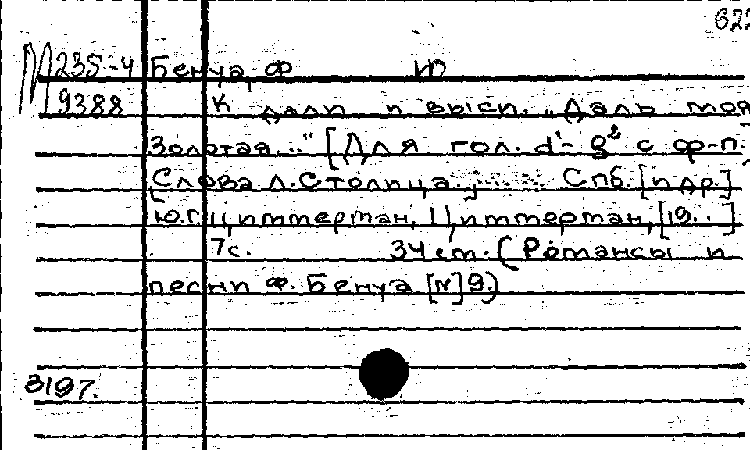 622
М 235-4 Бенуа, Ф.
9388 К дали и выси. „Даль моя
Золотая..." [Для гол. d¹-g² с ф-п.
(Слова Л. Столица.) Спб. [и др.]
Ю.Г. Циммерман, Циммерман, [19..]
7с. 34 см. (Романсы и
песни Ф. Бенуа [№] 9.)
3197.